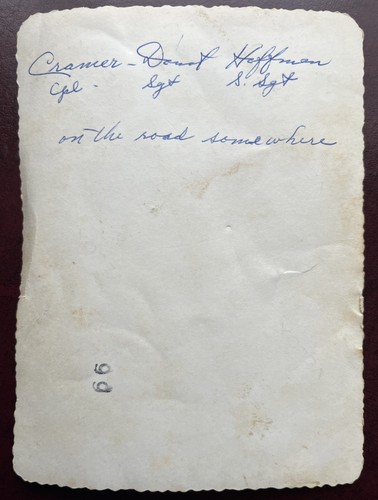 Cramer - Doust Hoffman
Cpl - Sgt S. Sgt
on the road somewhere
99